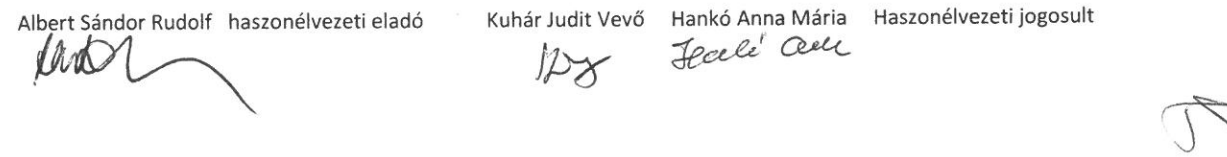 Albert Sándor Rudolf haszonélvezeti eladó Kuhár Judit Vevő Hankó Anna Mária Haszonélvezeti jogosult